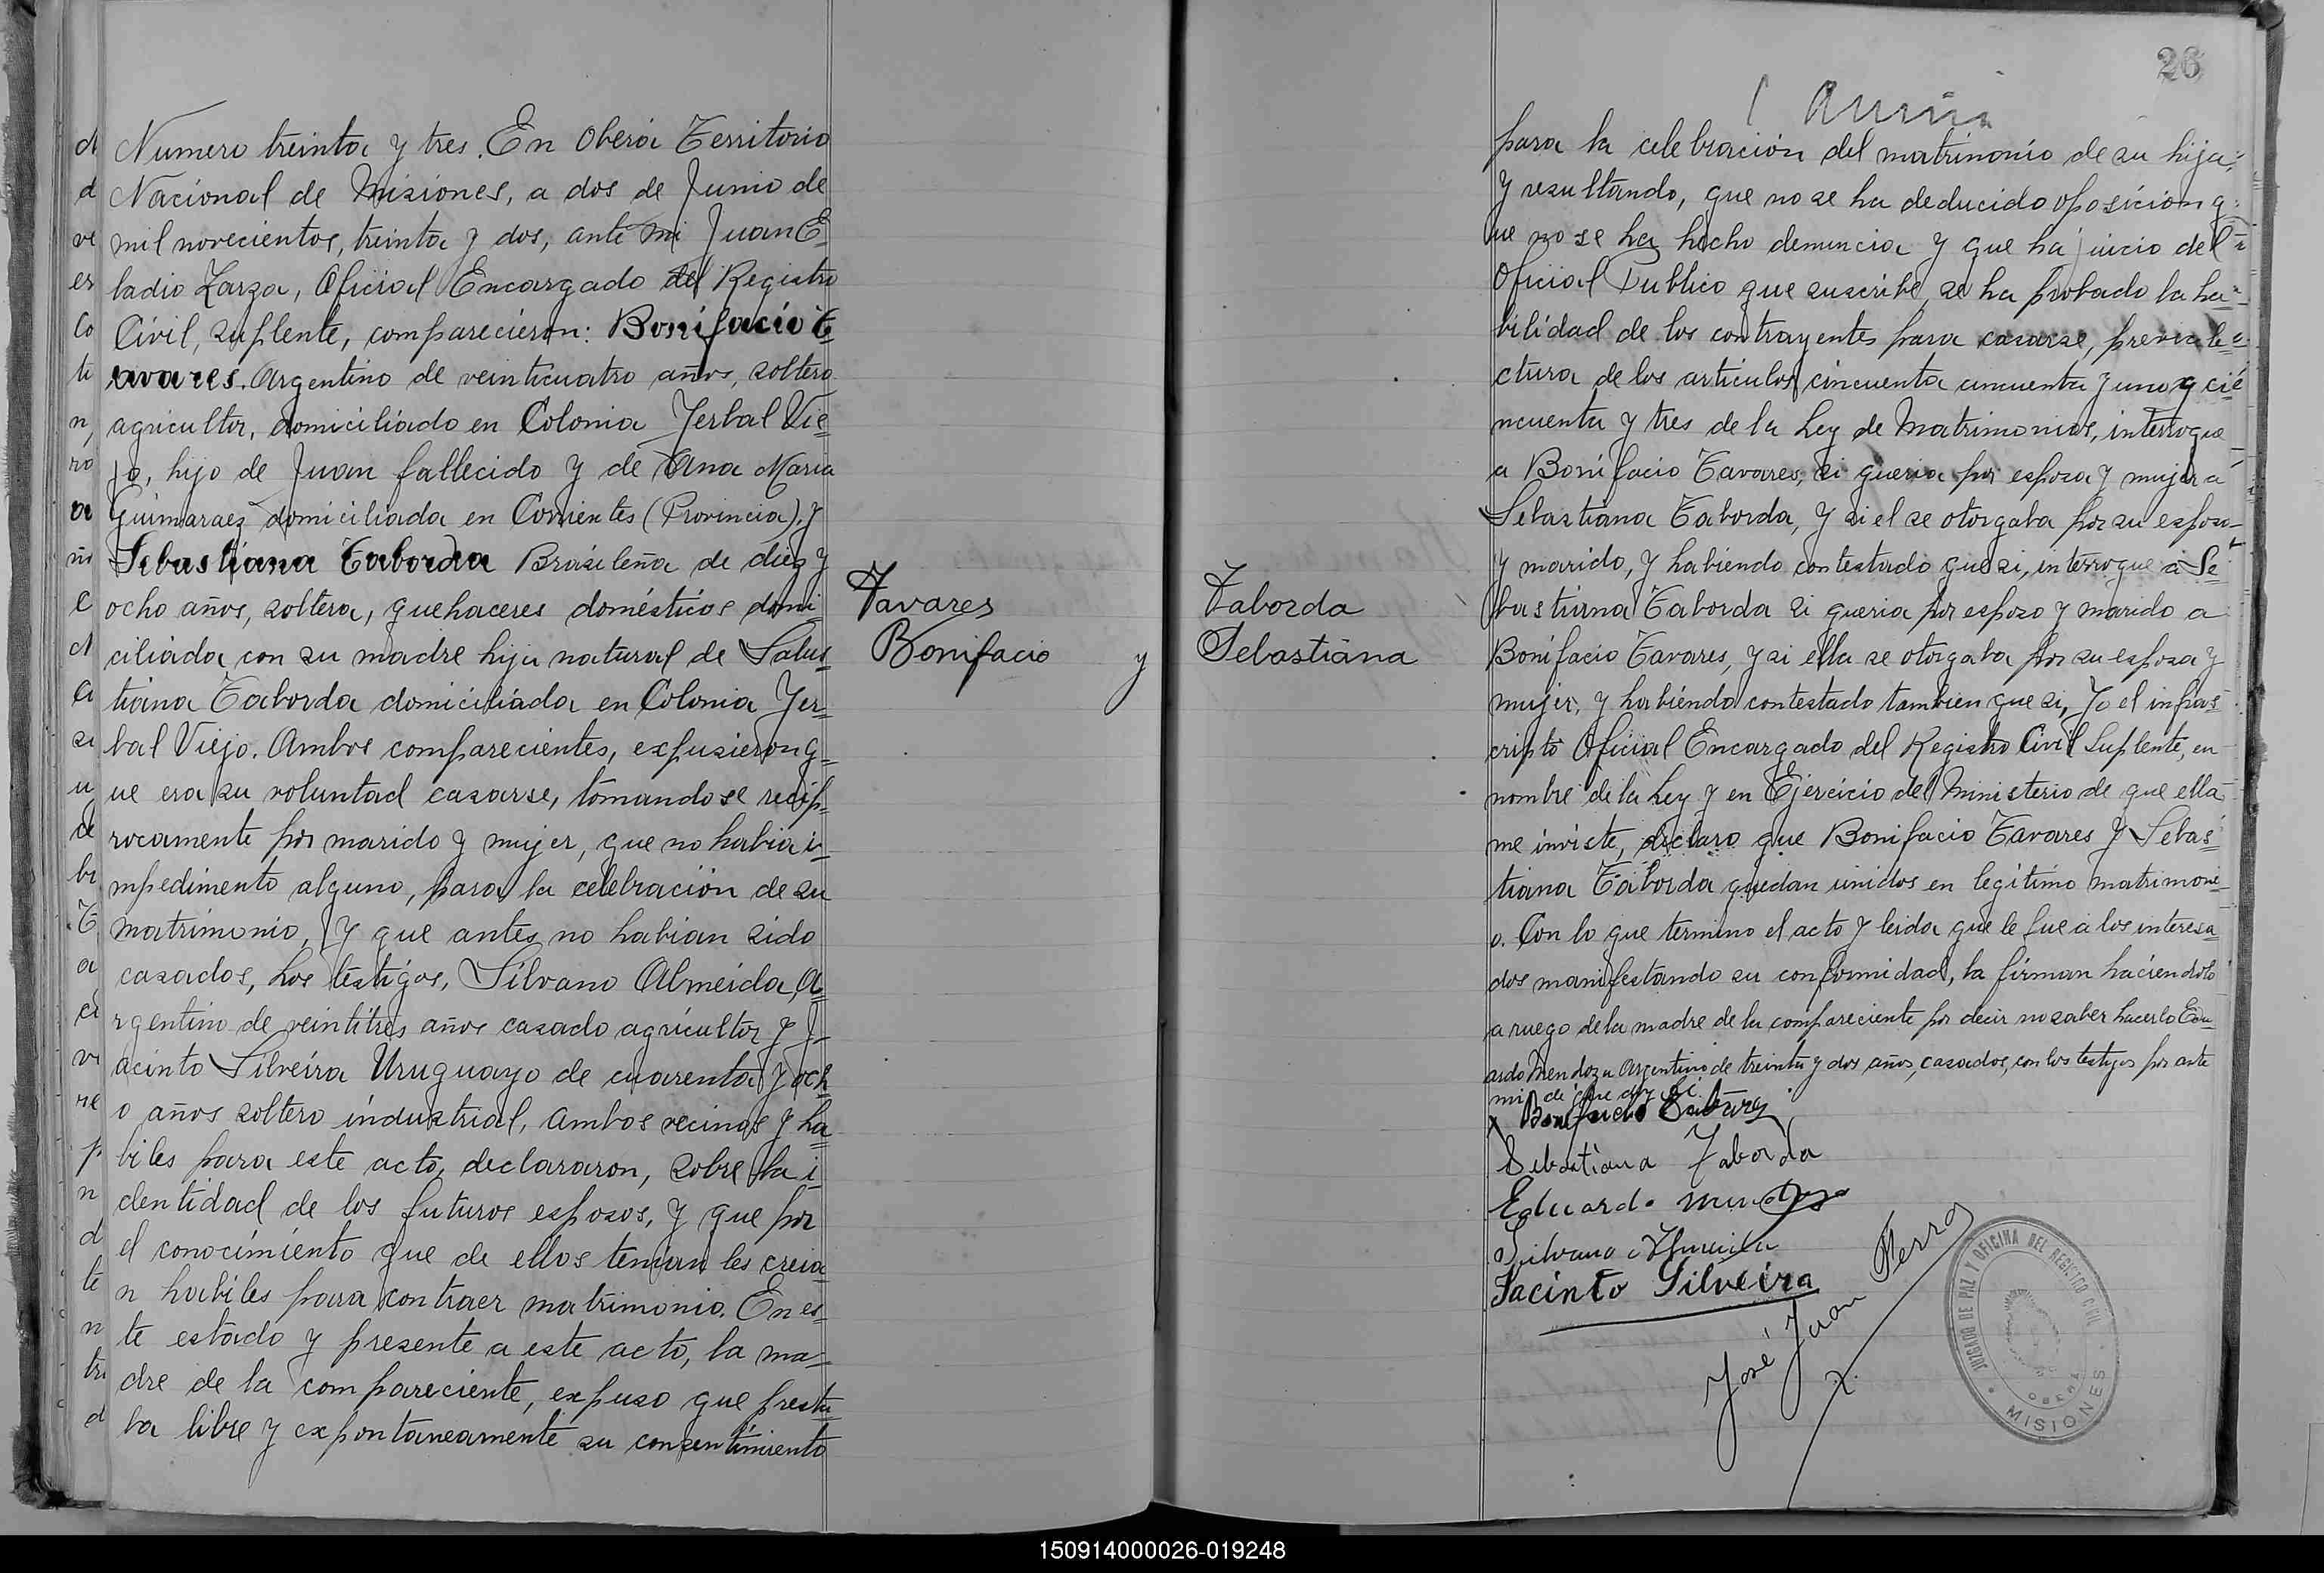 Numero treinta y tres. En Oberá Territorio
Nacional de Misiones, a dos de Junio de
mil novecientos, treinta y dos, ante mi Juan E-
ladio Zarza, Oficial Encargado del Registro
Civil, suplente, comparecieron: Bonifacio T-
avares. Argentino de veinticuatro años, soltero
agricultor, domiciliado en Colonia Yerbal Vie-
jo, hijo de Juan fallecido y de Ana Maria
Guimaraez domiciliada en Corrientes (Provincia), y
Sebastiana Taborda Brasileña de diez y
ocho años, soltera, quehaceres domésticos domi-
ciliada con su madre hija natural de Salus-
tiana Taborda domiciliada en Colonia Yer-
bal Viejo. Ambos comparecientes, expusieron q-
ue era su voluntad casarse, tomandose recip-
rocamente por marido y mujer, que no habia i-
mpedimento alguno, para la celebración de su
matrimonio, Y que antes no habian sido
casados, Los testigos, Silvano Almeida, A-
rgentino de veintitres años casado agricultor y J-
acinto Silveira Uruguayo de cuarenta y och-
o años soltero industrial, ambos vecinos y ha-
biles para este acto, declararon, sobre la i-
dentidad de los futuros esposos, y que por
el conocimiento que de ellos tenian les creia-
n habiles para contraer matrimonio. En es-
te estado y presente a este acto, la ma-
dre de la compareciente, expuso que presta-
ba libre y expontaneamente su consentimiento
Tavares
Bonifacio y
Taborda
Sebastiana
26
para la celebración del matrimonio de su hija;
Y resultando, que no se ha deducido oposición q-
ue no se ha hecho denuncia y que ha juicio del
Oficial Publico que suscribe, se ha probado la ha-
bilidad de los contrayentes para casarse, previa le-
ctura de los articulos cincuenta cincuenta y uno, y ci-
ncuenta y tres de la Ley de Matrimonios, interrogue
a Bonifacio Tavares, si queria por esposa y mujer a
Sebastiana Taborda, y si el se otorgaba por su esposo
y marido, y habiendo contestado que si, interrogue a Se-
bastiana Taborda si queria por esposo y marido a
Bonifacio Tavares, y si ella se otorgaba por su esposa y
mujer, y habiendo contestado tambien que si, Yo el infras-
cripto Oficial Encargado del Registro Civil Suplente, en
nombre de la Ley y en Ejercicio del Ministerio de que ella
me inviste, declaro que Bonifacio Tavares y Sebas-
tiana Taborda quedan unidos en legitimo matrimoni-
o. Con lo que termino el acto y leida que le fue a los interesa-
dos manifestando su conformidad, la firman haciendolo
a ruego de la madre de la compareciente por decir no saber hacerlo Edu-
ardo Mendoza Argentino de treinta y dos años, casados, con los testigos por ante
mi de que doy fé.
Bonifacio Tavares
Sebastiana Taborda
Eduardo Mendoza
Silvano Almeida
Jacinto Silveira
José Juan
JUZGADO DE PAZ Y OFICINA DEL REGISTRO CIVIL
OBERÁ
MISIONES
150914000026-019248